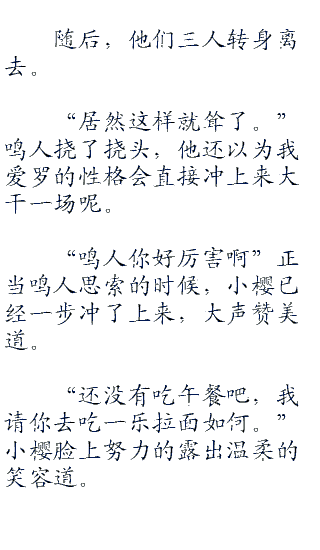 随后，他们三人转身离
去。
“居然这样就耸了。”
鸣人挠了挠头，他还以为我
爱罗的性格会直接冲上来大
干一场呢。
“鸣人你好厉害啊”正
当鸣人思索的时候，小樱已
经一步冲了上来，大声赞美
道。
“还没有吃午餐吧，我
请你去吃一乐拉面如何。”
小樱脸上努力的露出温柔的
笑容道。